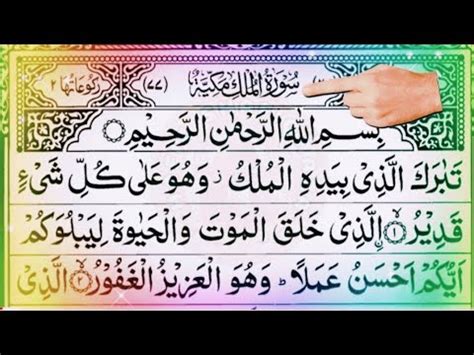 سُوْرَةُ الْمُلْكِ مَكِّيَّةٌ (٧٧) رُكُوْعَاتُهَا ٢
بِسْمِ اللّٰهِ الرَّحْمٰنِ الرَّحِيْمِ
تَبٰرَكَ الَّذِيْ بِيَدِهِ الْمُلْكُ ز وَهُوَ عَلٰى كُلِّ شَيْءٍ
قَدِيْرُ ۙ﴿١﴾ اِۨلَّذِيْ خَلَقَ الْمَوْتَ وَالْحَيٰوةَ لِيَبْلُوَكُمْ
اَيُّكُمْ اَحْسَنُ عَمَلًا ؕ وَهُوَ الْعَزِيْزُ الْغَفُوْرُ ۙ﴿٢﴾ الَّذِيْ